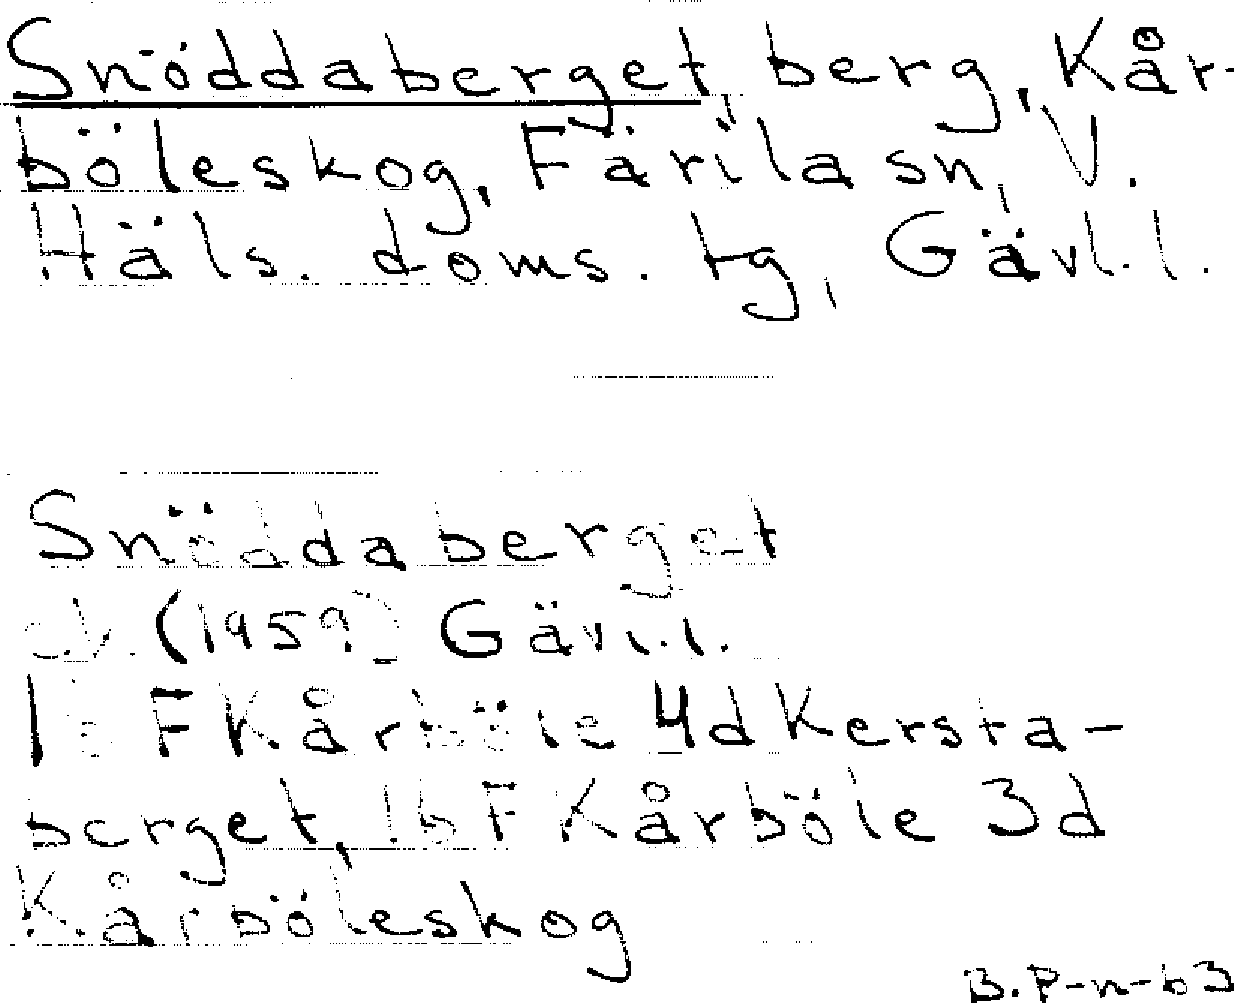 Snöddaberget, berg, Kår-
böleskog, Färila sn, V.
Häls. doms. tg, Gävl. l.
Snöddaberget
(1959) Gävl. l.
F Kårböle 4d Kersta-
berget, 16 F Kårböle 3d
Kårböleskog
B.P-n-63